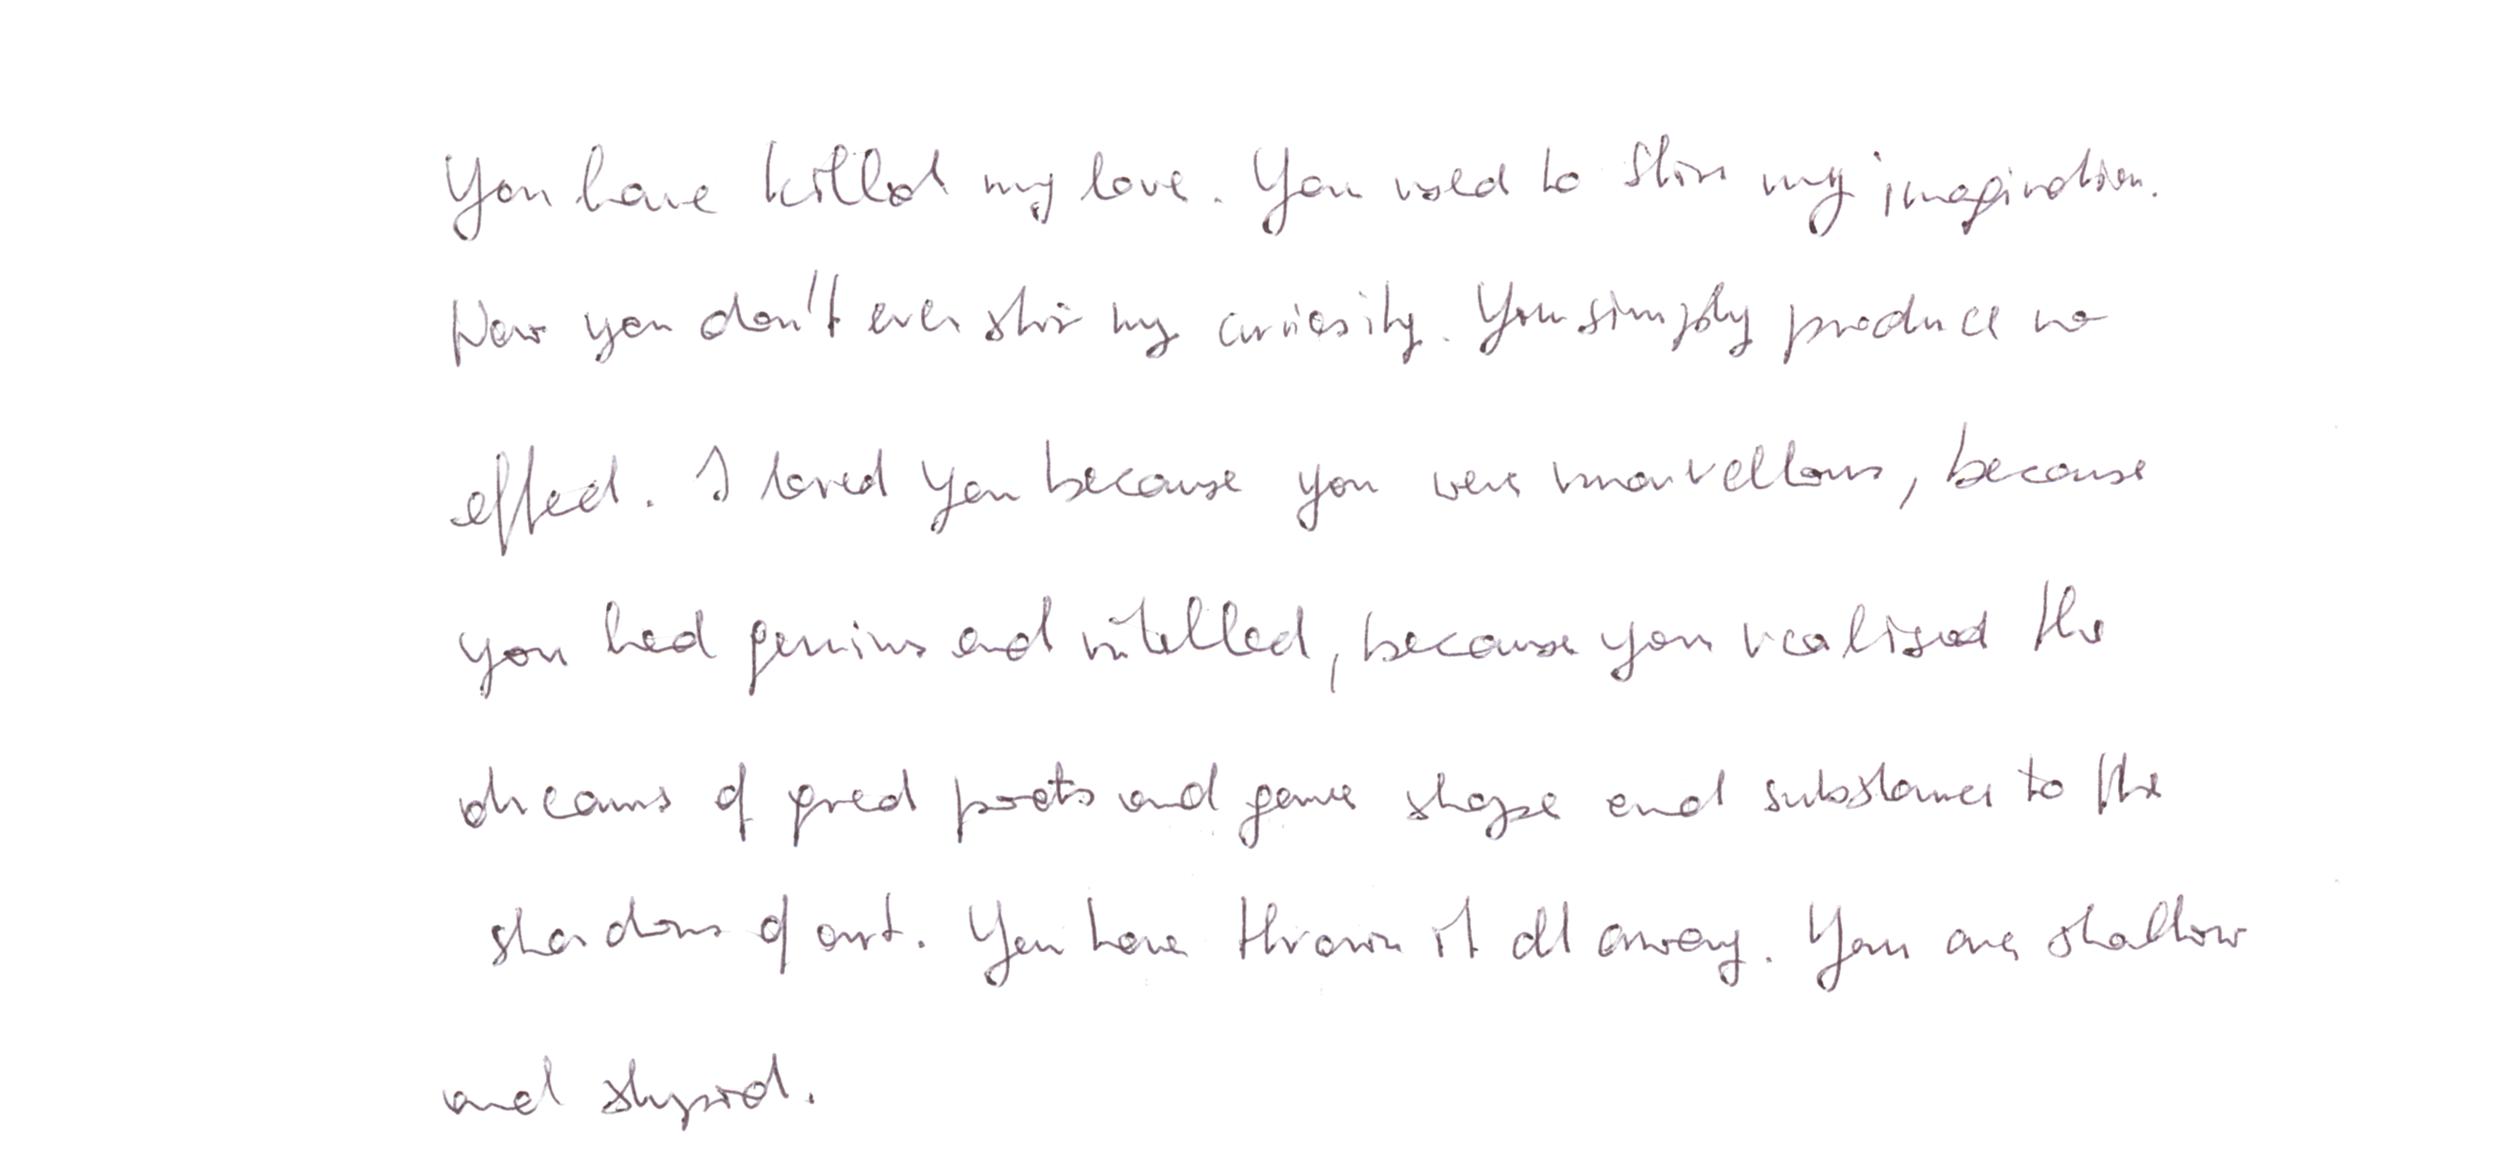 You have killed my love. You used to stir my imagination.
Now you don't even stir my curiosity. You simply produce no
effect. I loved you because you were marvellous, because
you had genius and intellect, because you realised the
dreams of great poets and gave shape and substance to the
shadows of art. You have thrown it all away. You are shallow
and stupid.